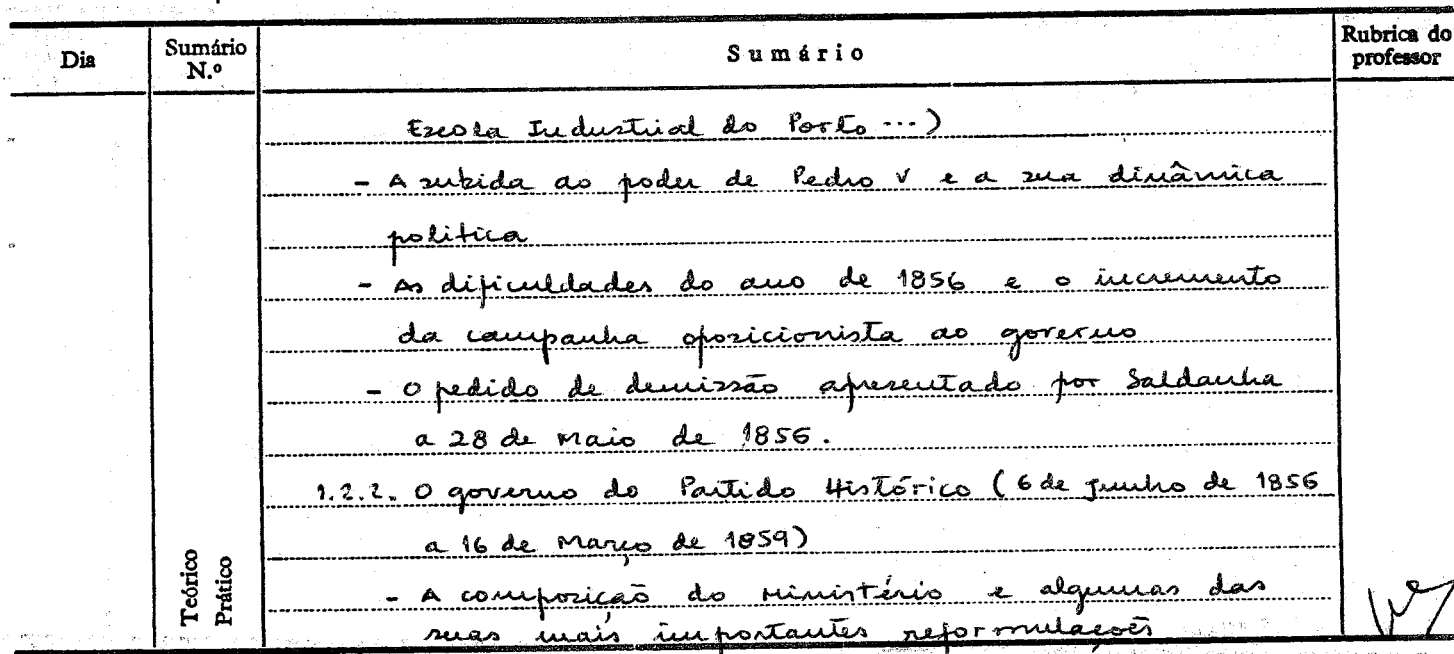 Dia
Sumário N.º
Sumário
Rubrica do professor
Escola Industrial do Porto ...)
- A subida ao poder de Pedro V e a sua dinâmica
politica
- As dificuldades do ano de 1856 e o incremento
da campanha oposicionista ao governo
- O pedido de demissão apresentado por Saldanha
a 28 de Maio de 1856.
1.2.2. O governo do Partido Histórico (6 de Junho de 1856
a 16 de Março de 1859)
- A composição do Ministério e algumas das
suas mais importantes reformulações
Teórico
Prático